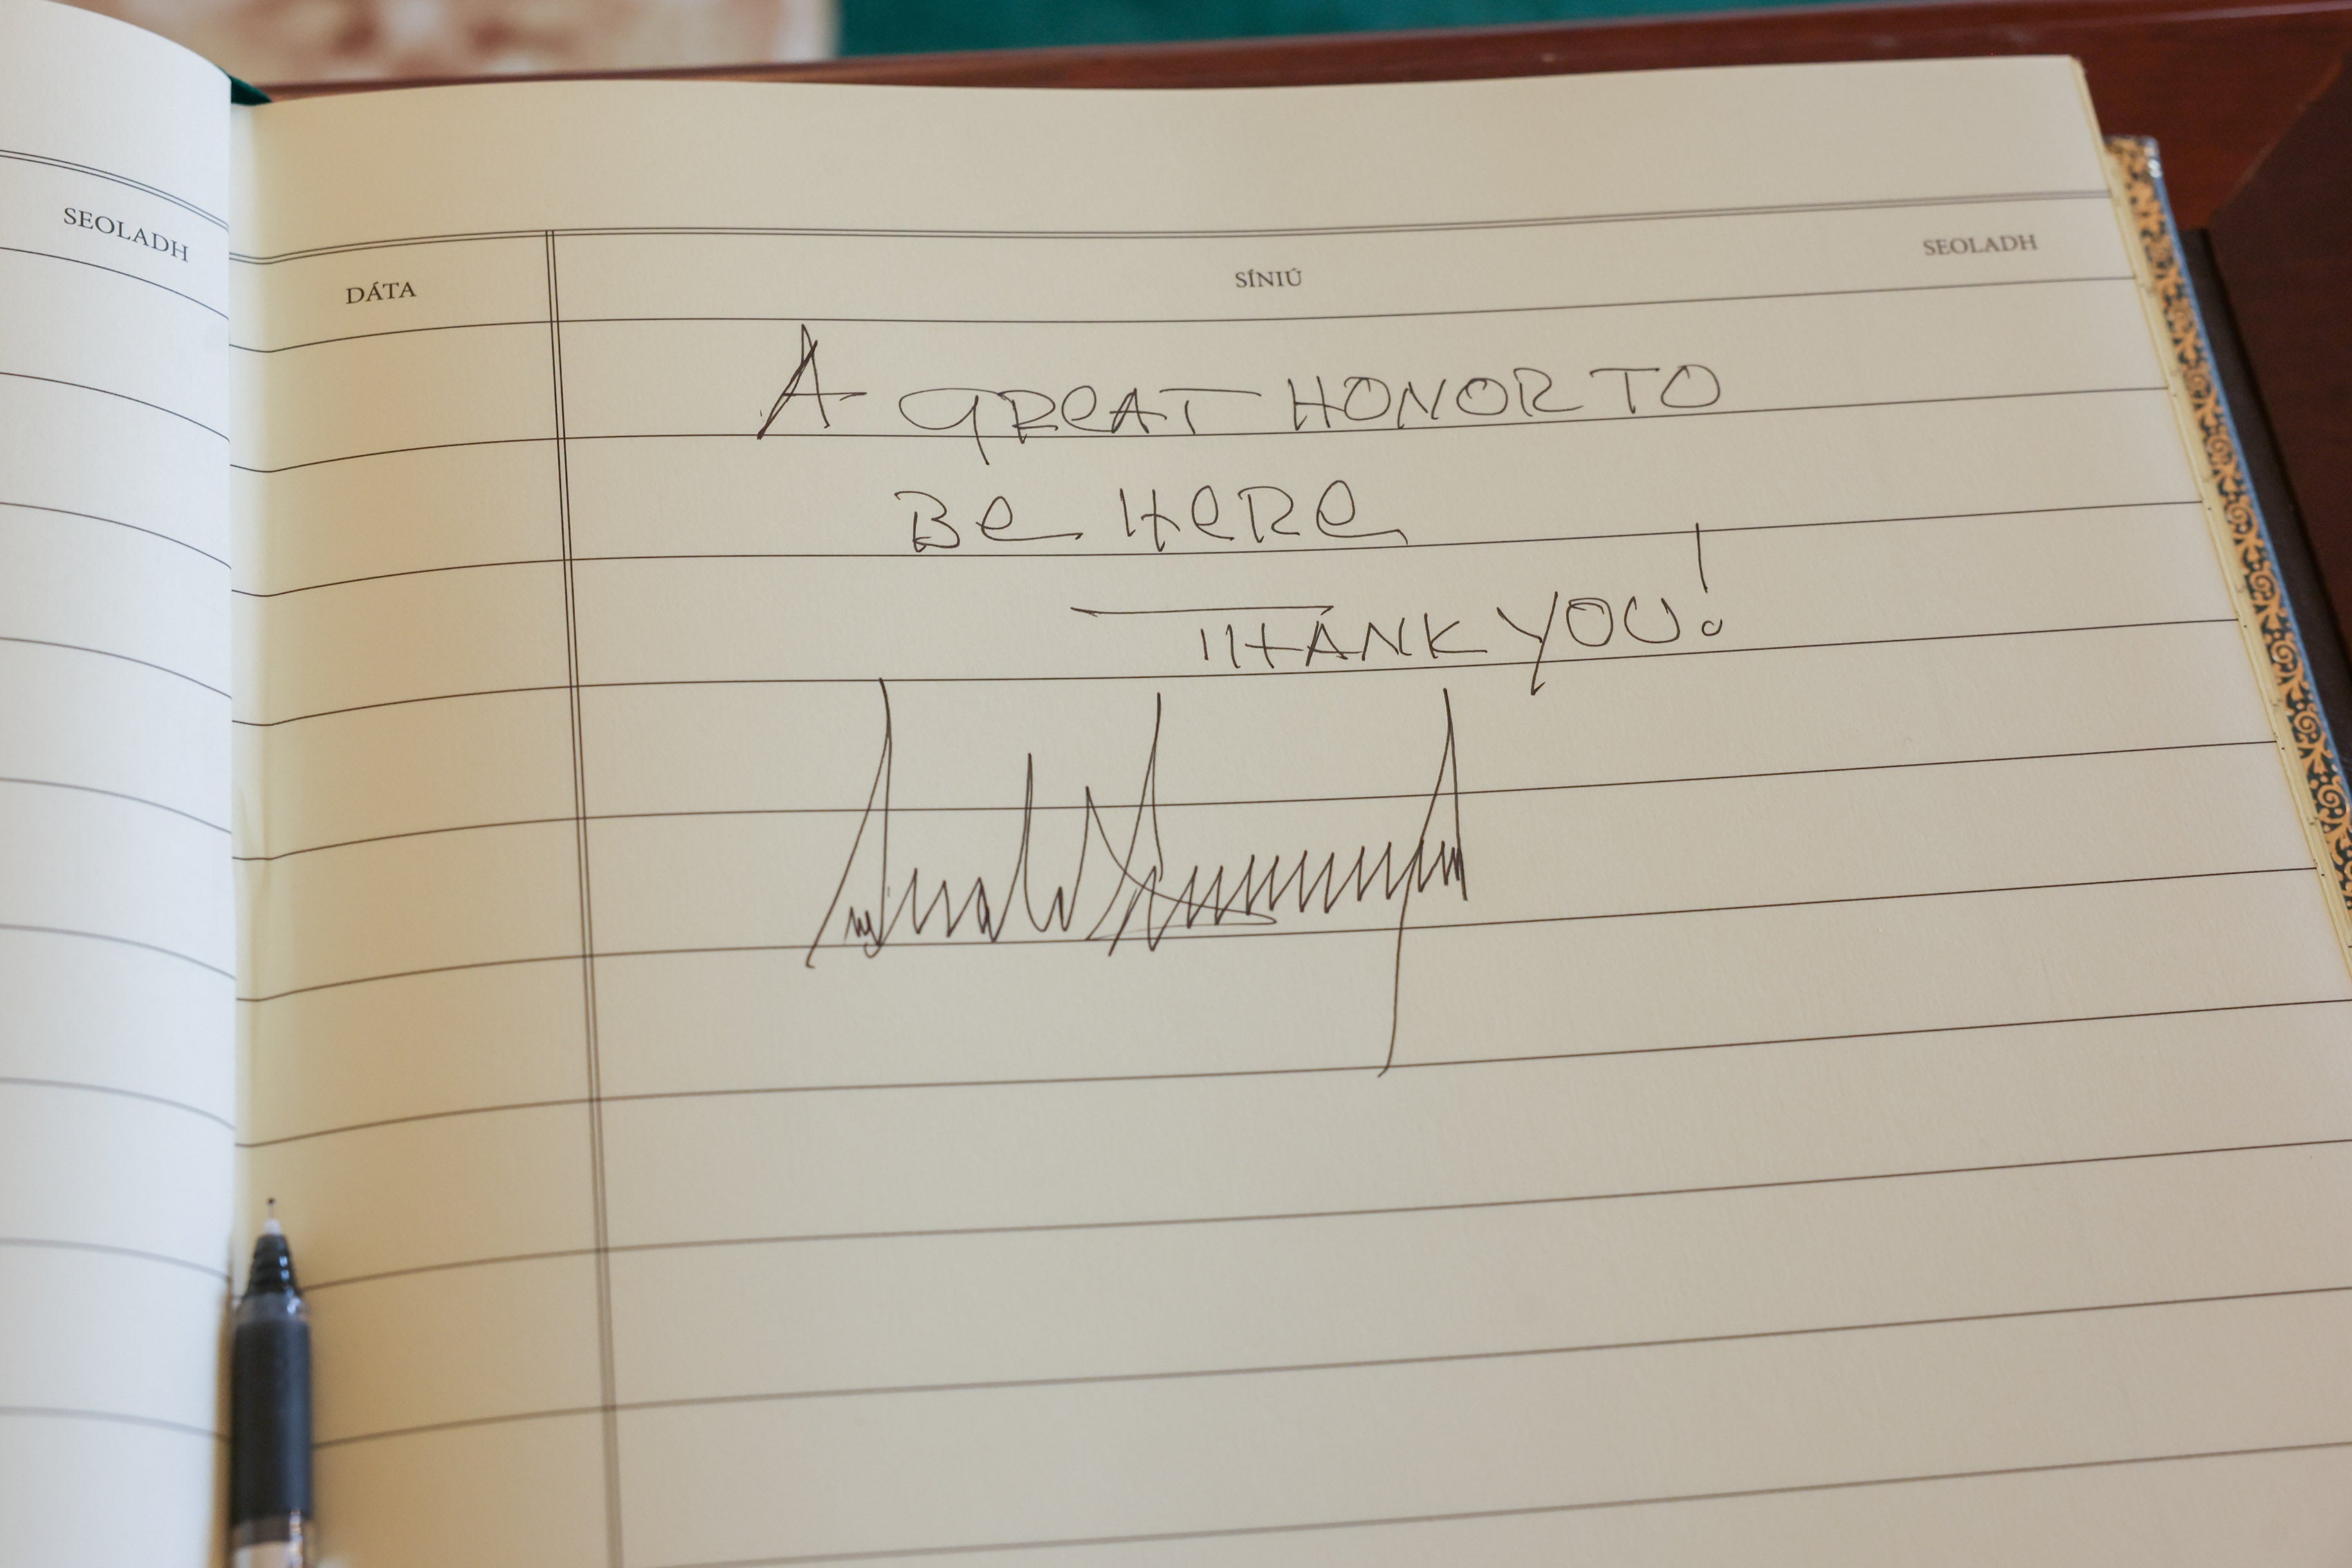 SEOLADH
DÁTA SÍNIÚ SEOLADH
A GREAT HONOR TO
BE HERE
THANK YOU!